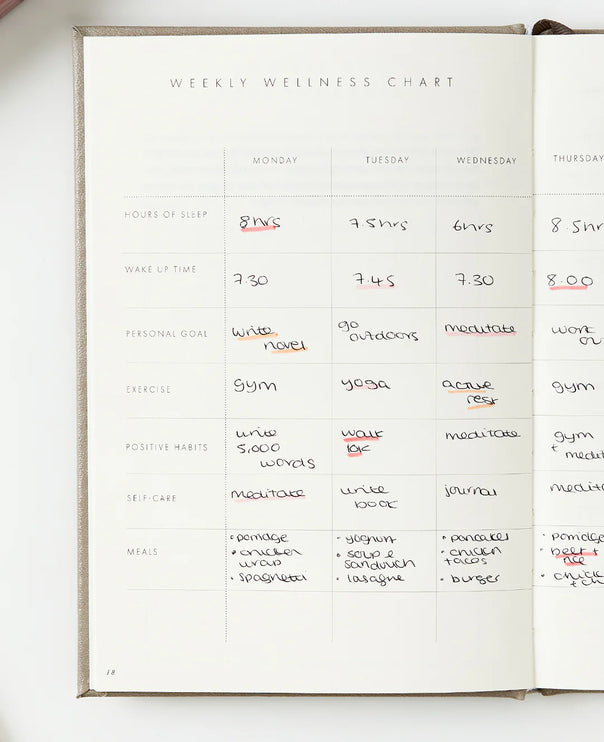 WEEKLY WELLNESS CHART
MONDAY TUESDAY WEDNESDAY THURSDAY
HOURS OF SLEEP 8hrs 7.5hrs 6hrs 8.5hr
WAKE UP TIME 7.30 7.45 7.30 8.00
PERSONAL GOAL write go meditate work
novel outdoors ou
EXERCISE gym yoga active gym
rest
POSITIVE HABITS write walk meditate gym
5,000 10k + medit
words
SELF-CARE meditate write journal medit
book
MEALS • porridge • yoghurt • pancakes • porridge
• chicken • soup & • chicken • beef +
wrap sandwich tacos rice
• spaghetti • lasagne • burger • chick
+ ch
18